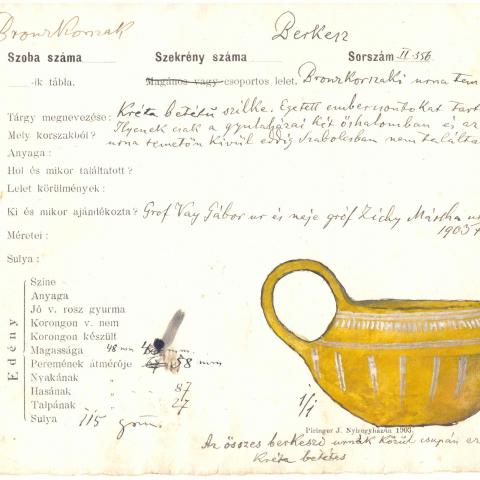 Bronzkorszak Berkesz
Szoba száma Szekrény száma Sorszám II-556
-ik tábla. Magános vagy csoportos lelet. Bronzkorszaki urna tem
Tárgy megnevezése: Kréta betétű szilke. Egetett embercsontokat tart
Mely korszakból? Ilyenek csak a gyulaházai két őshalomban és az
Anyaga: urna temetőn kívül eddig Szabolcsban nem találta
Hol és mikor találtatott?
Lelet körülmények:
Ki és mikor ajándékozta? Gróf Vay Gábor ur és neje gróf Zichy Mártha u
Méretei: 1905
Sulya:
Edény
Szine
Anyaga
Jó v. rosz gyurma
Korongon v. nem
Korongon készült
Magassága 48 mm
Peremének átmérője 58 mm
Nyakának "
Hasának " 87
Talpának " 27
Sulya 115 grm.
1/1
Piringer J. Nyiregyháza 1905.
Az összes berkeszi urnák közül csupán ez
kréta betétes